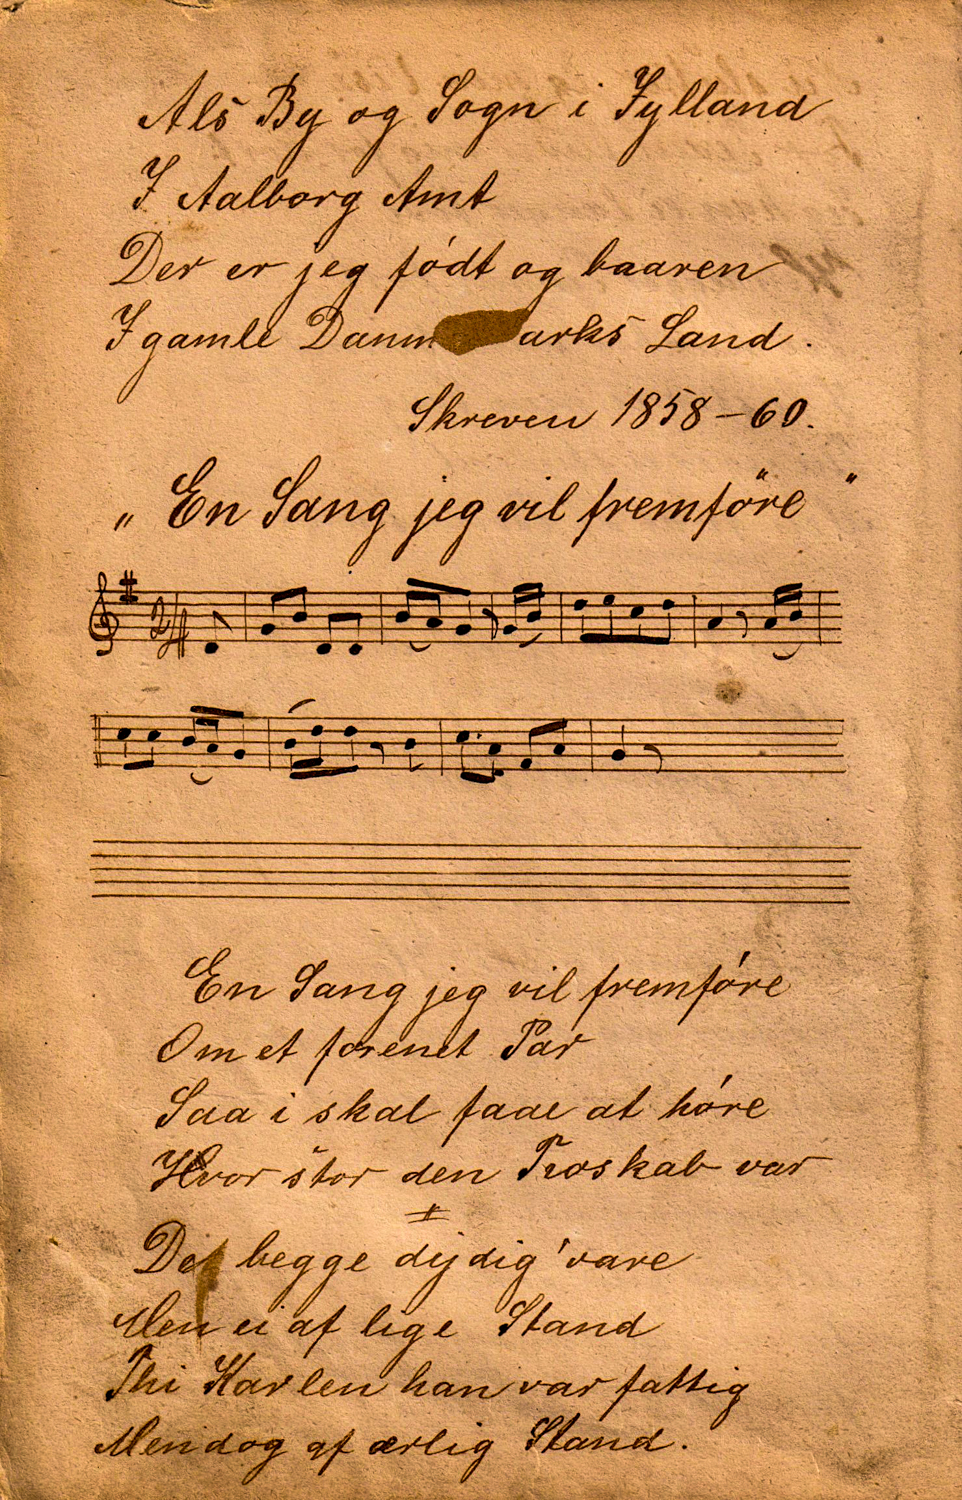 Als By og Sogn i Jylland
I Aalborg Amt
Der er jeg født og baaren
I gamle Danmarks Land.
Skreven 1858-60.
„En Sang jeg vil fremföre"
2/4
En Sang jeg vil fremfóre
Om et forenet Par
Saa i skal faae at hóre
Hvor stor den Troskab var
De begge dejdig vare
Men ei af lige Stand
Thi Karlen han var fattig
Men dog af ærlig Stand.